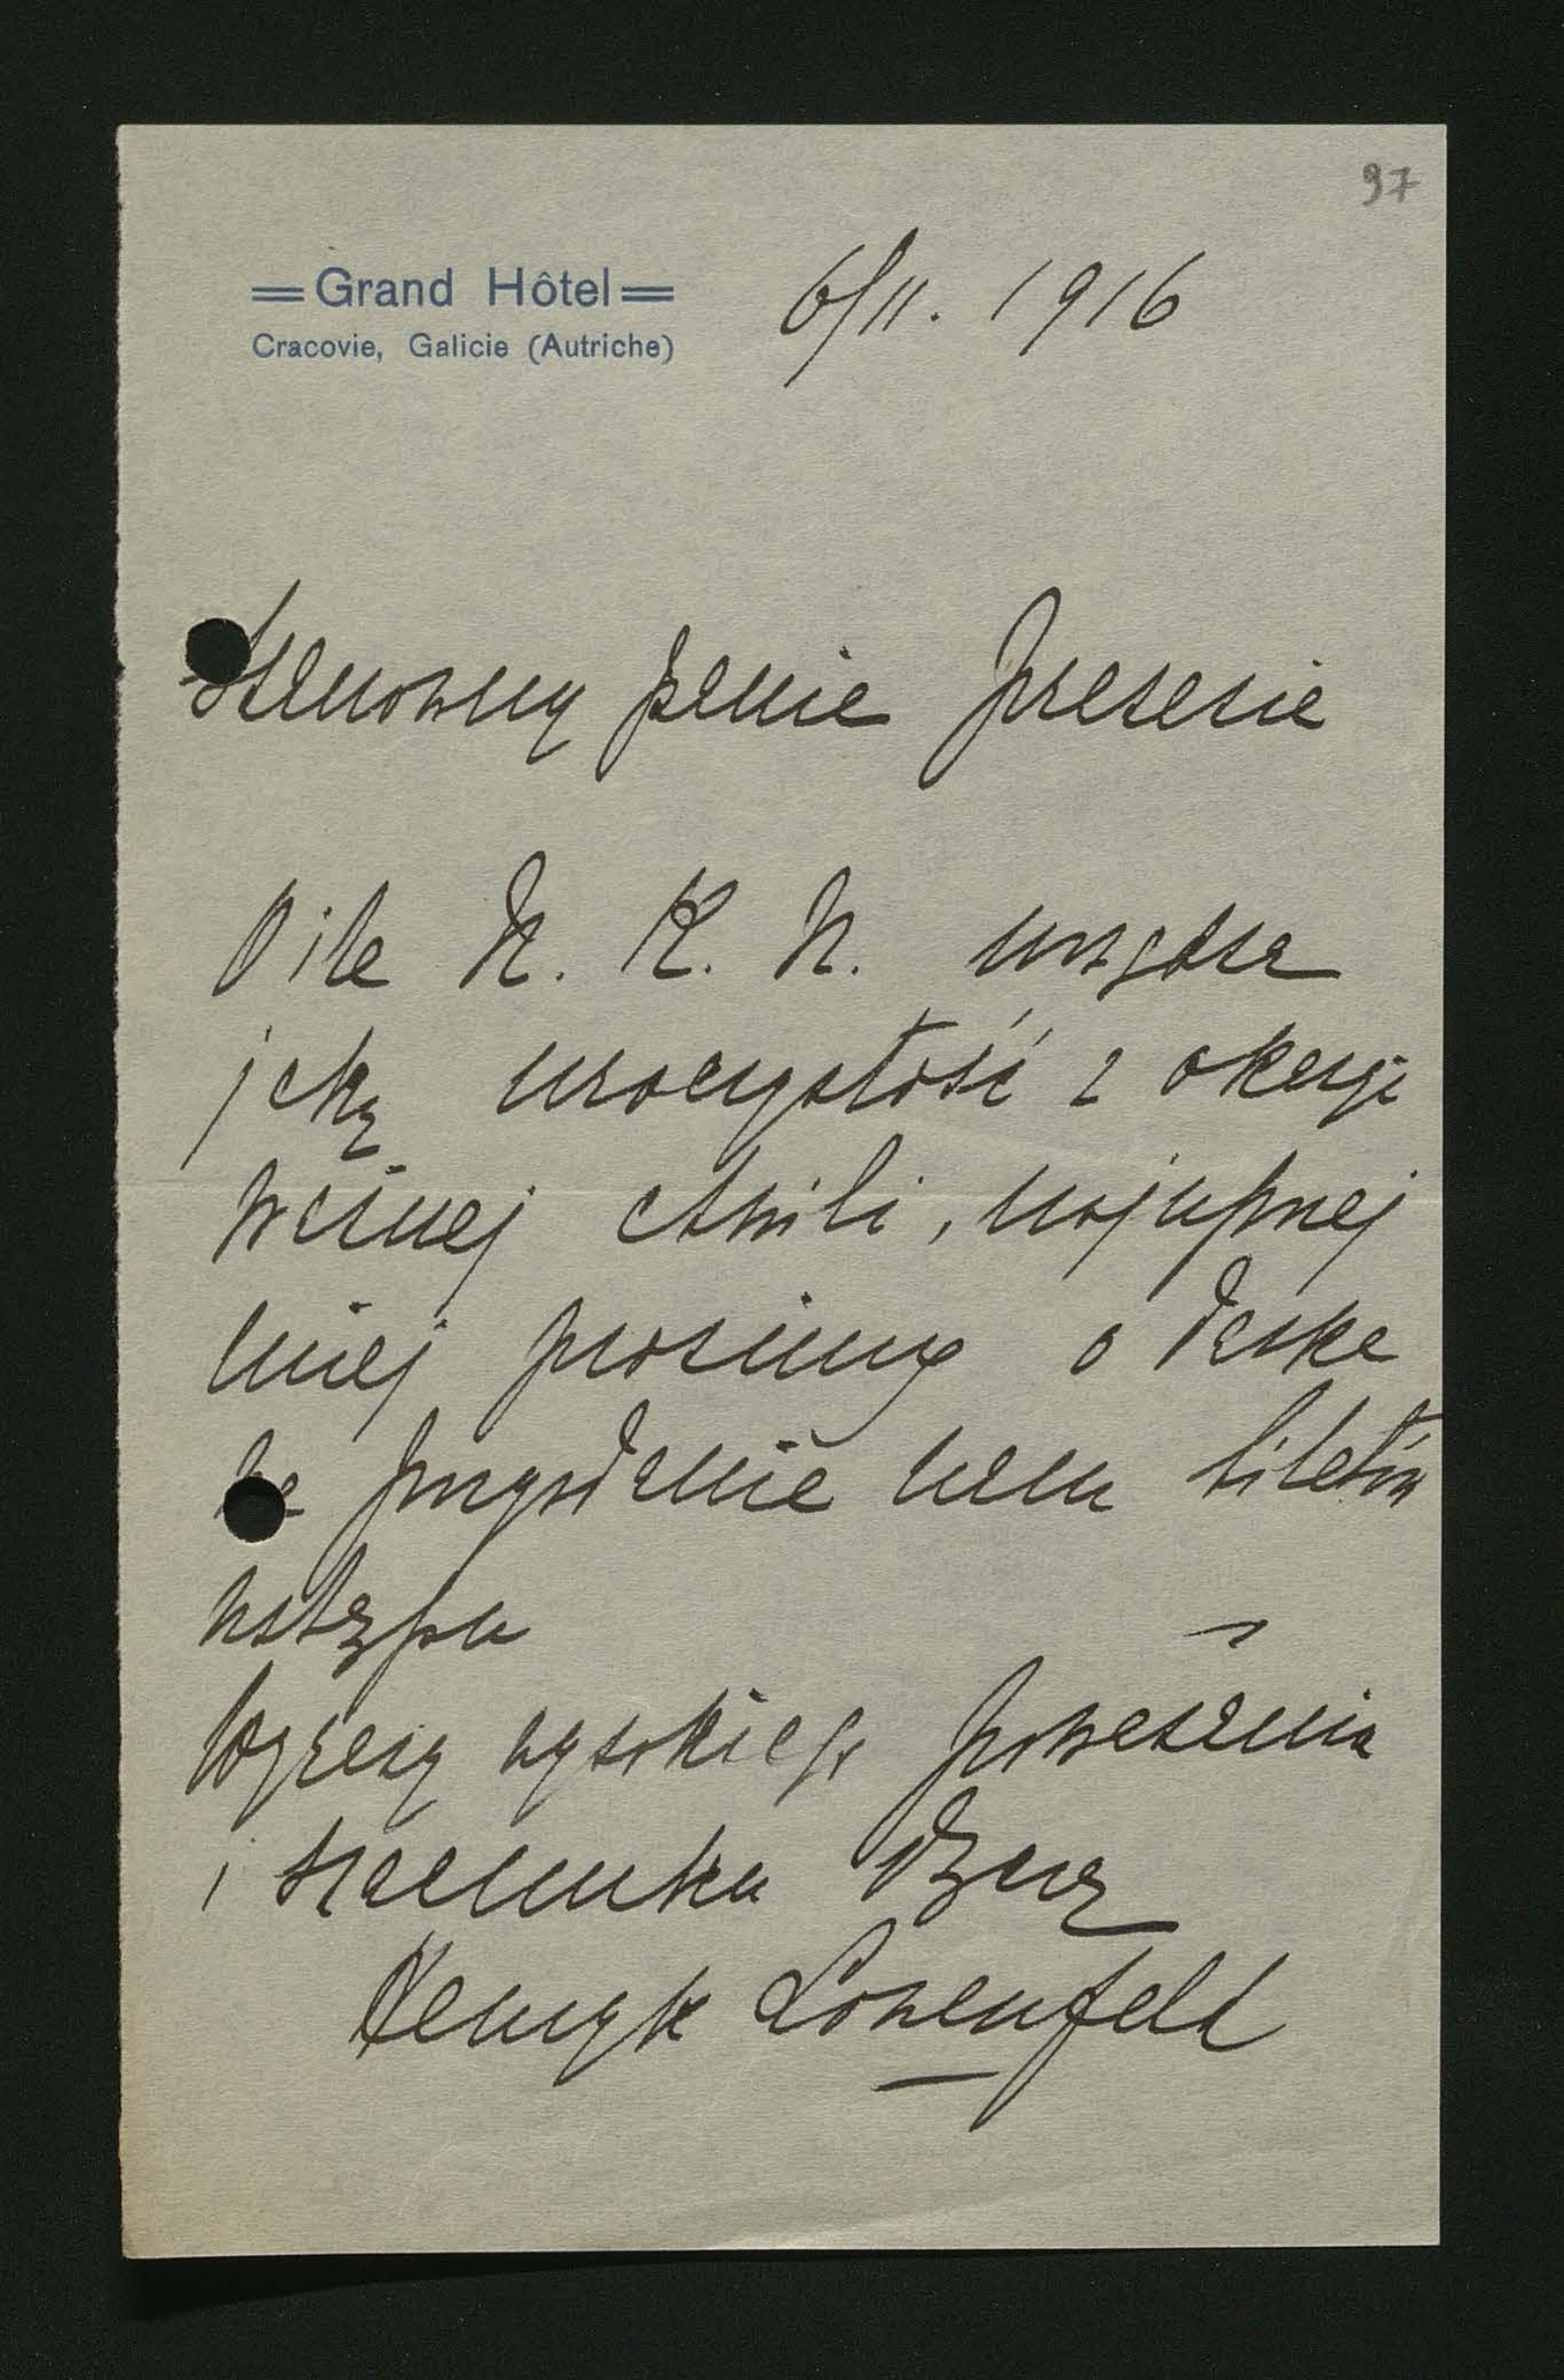 97
Grand Hôtel
Cracovie, Galicie (Autriche)
6/11. 1916
Szanowny panie prezesie
O ile N. K. N. urządza
jaką uroczystość z okazji
ważnej chwili, najuprzej
miej prosimy o łaska
we przysłanie nam biletów
wstępu
Wyrazy wysokiego poważania
i szacunku łączę
Henryk Lowenfeld